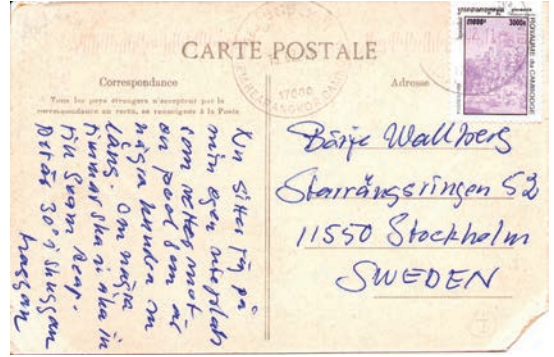 CARTE POSTALE
Correspondance
Adresse
Tous les pays étrangers n'acceptent pas la
correspondance au recto, se renseigner à la Poste
Nu sitter jag på
min egen uteplats
som vetter mot
en pool som är
några hundra m
lång. Om några
timmar ska vi åka in
till Sieam Reap.
Det är 30° i skuggan
Börje Wallberg
Starrängsringen 52
11550 Stockholm
SWEDEN
3000R
ROYAUME du CAMBODGE
17000